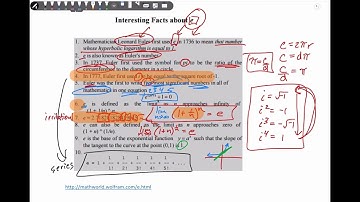 Interesting Facts about e
1. Mathematician Leonard Euler first used e in 1736 to mean that number
whose hyperbolic logarithm is equal to 1.
2. e is also known as Euler's number.
3. In 1737, Euler first used the symbol for pi to be the ratio of the
circumference to the diameter in a circle.
4. In 1777, Euler first used i to be equal to the square root of -1.
5. Euler was the first to write the most significant numbers in all of
mathematics in one equation
+1=0
6. e is defined as the limit as n approaches infinity of
(1 + 1/n)^n = e
irrational
8. e can also be defined as the limit as n approaches zero of
(1 + n)^(1/n)
(1+n) = e
9. e is the base of the exponential function y = a^x such that the slope
of the tangent to the curve at point (0,1) is 1
10.
series
C = 2πr
C = dπ
C/d = π
i = √-1
i² = -1
i³ = -√-1
i⁴ = 1
http://mathworld.wolfram.com/e.html